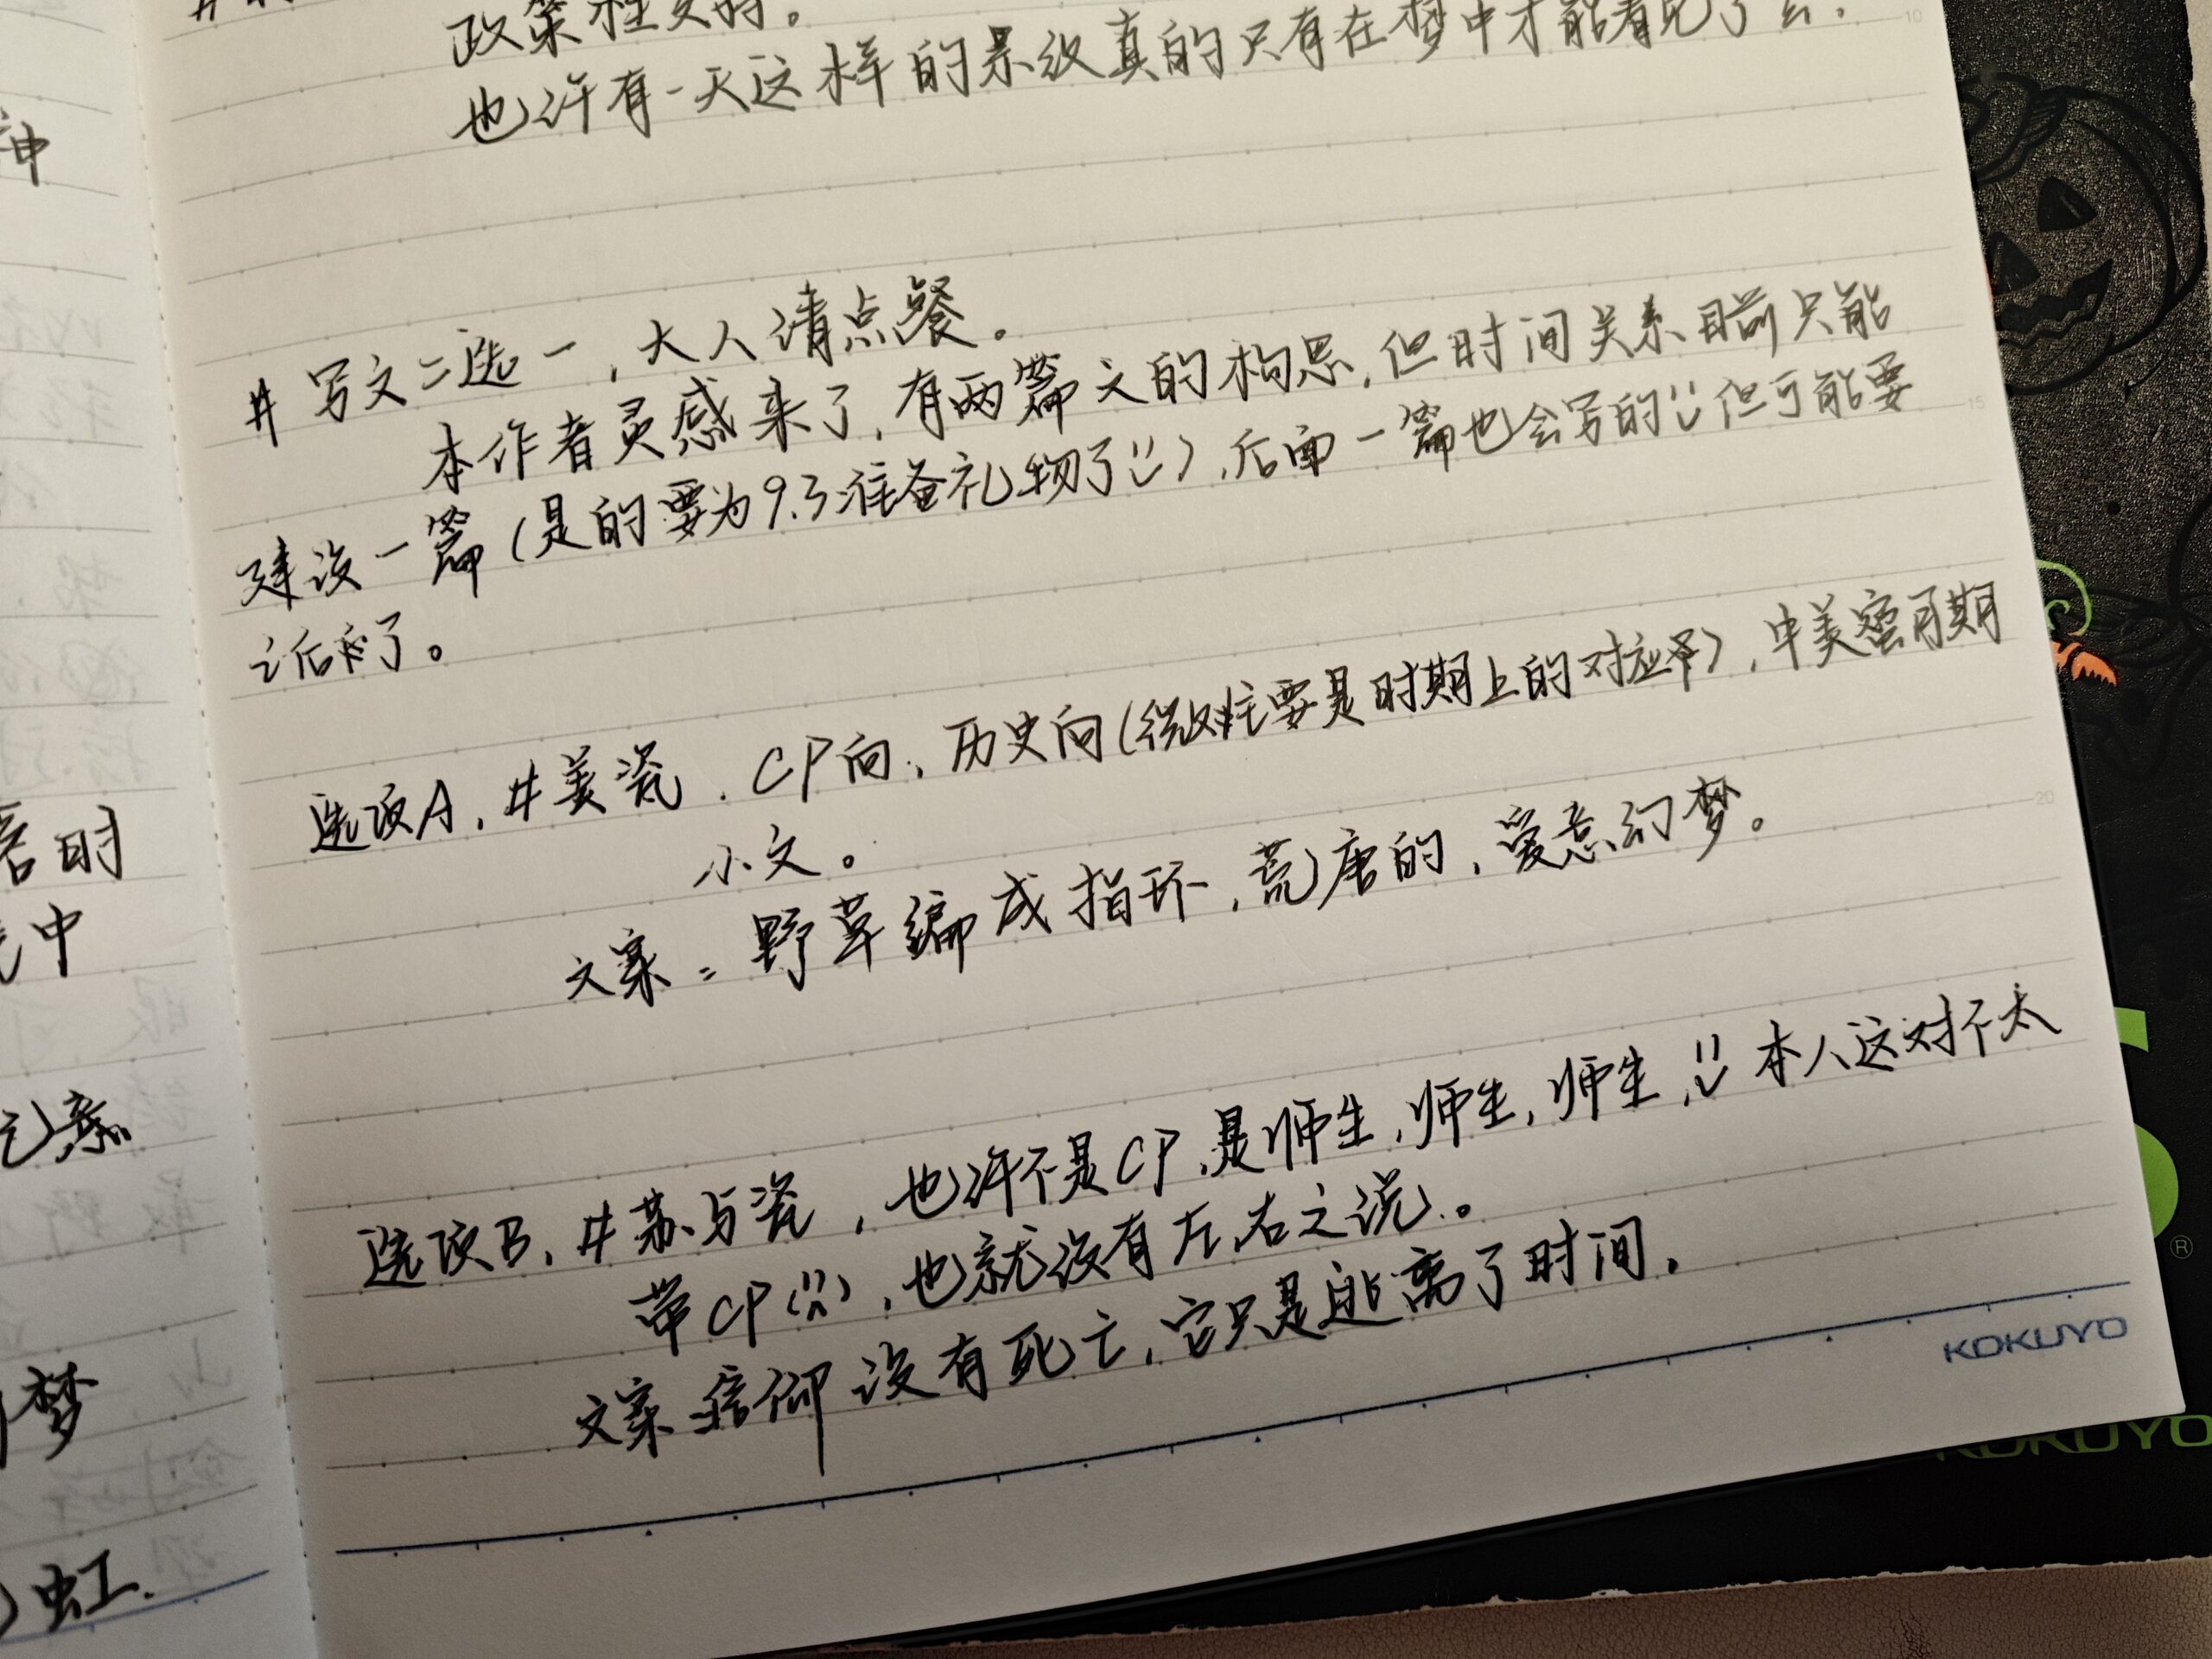 神
政策性
也许有一天这样的景致真的只有在梦中才能看见了
# 写文二选一,大人请点餐。
本作者灵感来了,有两篇文的构思,但时间关系目前只能
建设一篇(是的要为9.3准备礼物了),后面一篇也会写的但可能要
之后了。
选项A,#美瓷. CP向,历史向(微 主要是时期上的对应),中美蜜月期
小文。
文案:野草编成指环,荒唐的,爱意幻梦。
选项B,#苏与瓷,也许不是CP,是师生,师生,师生,本人这对不太
带CP(),也就没有左右之说。
文案:信仰没有死亡,它只是逃离了时间.
KOKUYO
时
中
意
梦
虹.
10
15
20
KOKUYO
®